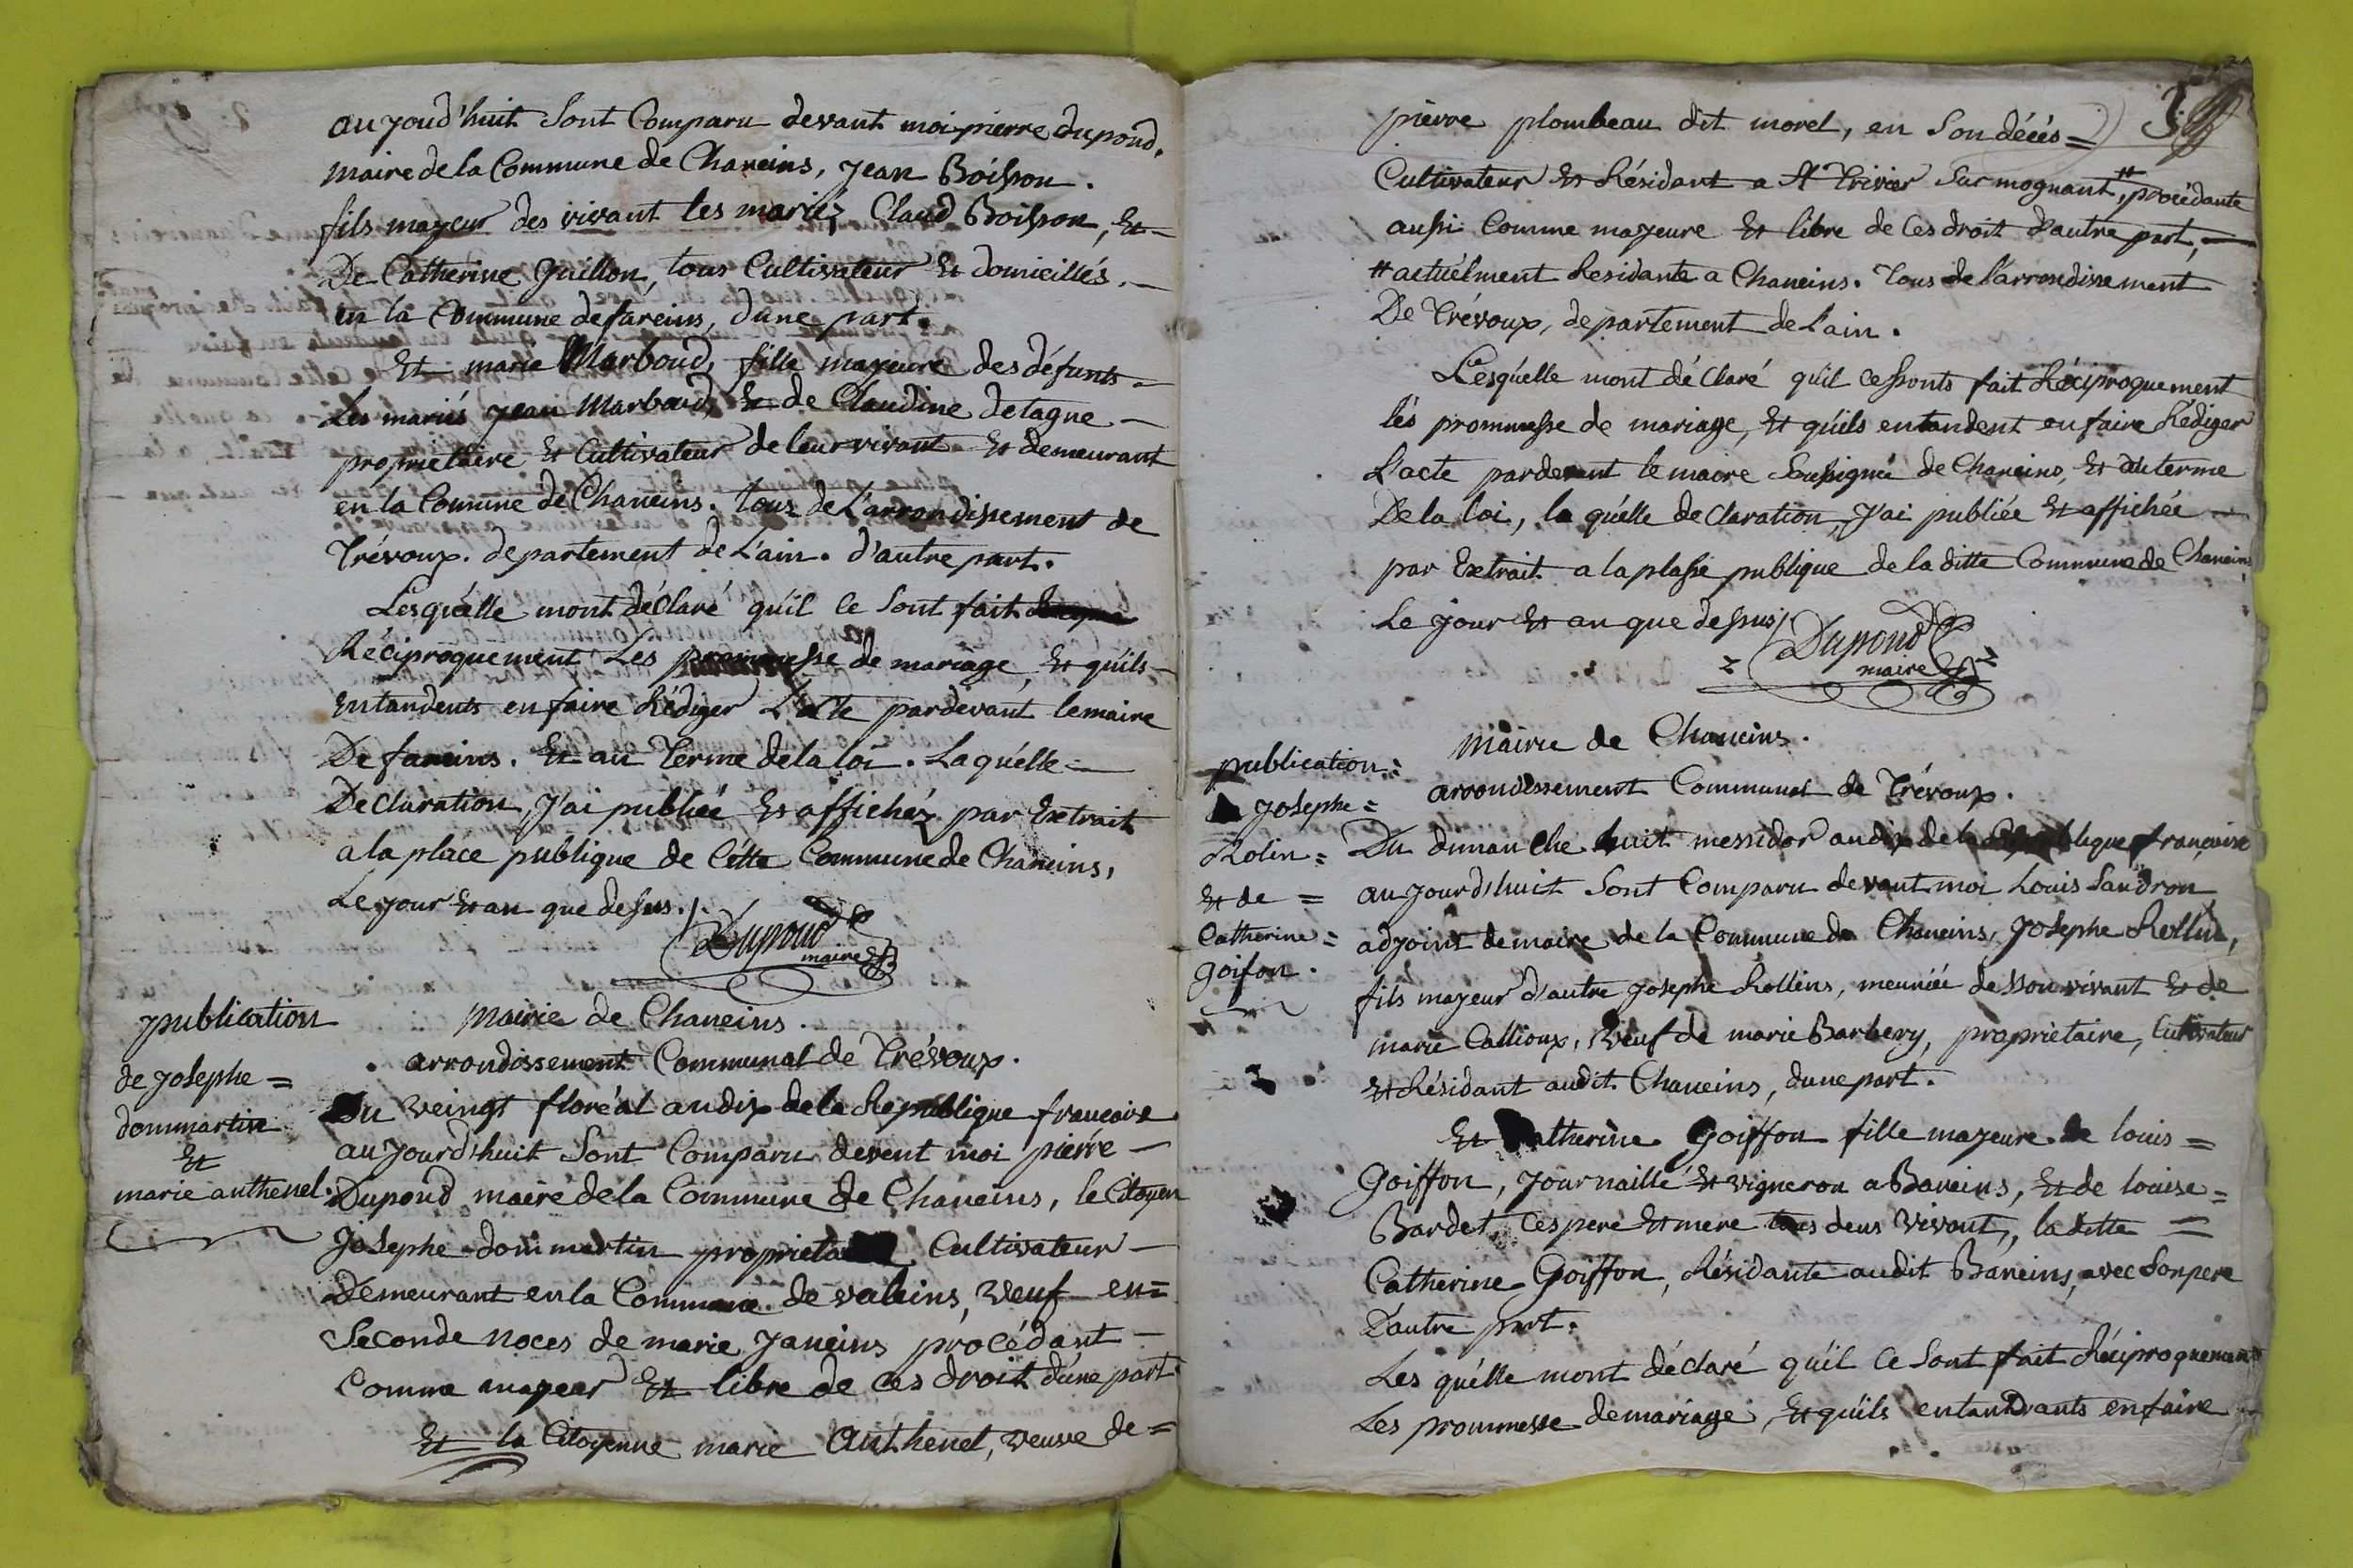 aujoud'huit Sont Comparu devant moi pierre dupond,
maire de la Commune de Chaneins, jean Boisson.
fils mayeur des vivant les mariéz Claud Boisson, Et
De Catherine Guillon, tous Cultivateur Et domicillés.
en la Commune defareins, dune part.
Et marie Marboud, fille mayeure des défunts =
Les mariés jean Marboud, Et de Claudine detagne
propriétaire Et Cultivateur de leur vivant Et demeurant
en la Comune de Chaneins. tous de L'arrondissement de
Trévoux. departement de L'ain. d'autre part.
Lesquélle mont déclaré qu'il ce Sont fait
Réciproquement Les prommesse de mariage, Et quils
Entandents en faire Rédiger L'acte pardevant lemaire
De fareins. Et au Terme dela loi. Laquélle =
Declaration, J'ai publiée Et affichéz par Extrait
a la place publique de Cétte Commune de Chaneins,
Le jour Et an que dessus.
Dupond
maire
publication
de josephe =
dommartin
Et
marie authenel.
Mairie de Chaneins.
arrondissement Communal de Trévoux.
Du veingt floréal an dix de la Republique francaise
aujourd'huit Sont Comparu devent moi pierre
Dupond maire dela Commune de Chaneins, le Citoyen
Josephe dommartin proprieta Cultivateur
Demeurant en la Commune de valeins, veuf en =
Seconde noces de marie Janeins procédant
Comme mayeur Et libre de ces droit dune part
Et la Citoyenne marie Authenel, veuve de =
3
pierre plombeau dit morel, en Son décés =
Cultivateur Et Résidant a St Trivier Sur mognant, # procédante
aussi Comme mayeure Et libre de Ces droit d'autre part,
# actuélment Residante a Chaneins. Tous de l'arrondissement
De Trévoux, departement de L'ain.
Lesquélle mont déClaré qu'il ce sonts fait Réciproquement
lés prommesse de mariage, Et quils entandent en faire Rédiger
L'acte pardevant le maire Soussigné de Chaneins, Et au terme
De la loi, la quélle declaration, J'ai publiée Et affichée
par Extrait a la plasse publique de la ditte Commune de Chaneins
Le jour Et an que dessus
Dupond
maire
publication =
josephe =
Rolin =
Et de =
Catherine =
goifon.
Mairie de Chaneins.
arrondissement Communal de Trévoux.
Du dimanche huit messidor an dix de la Republique francaise
aujourd'huit Sont Comparu devant moi Louis Sandron
adjoint de maire de la Commune de Chaneins, Josephe Rollin,
fils mayeur d'autre josephe Rollins, meuniée de son vivant Et de
marie Callioux, veuf de marie Barbery, propriétaire, Cultivateur
Et Résidant audit Chaneins, dune part.
Et Catherine Goiffon fille mayeure de louis =
Goiffon, Journaillé Et vigneron a Baneins, Et de louise =
Bardet, Ces pere Et mere tous deus vivant, la ditte =
Catherine Goiffon, Résidante audit Baneins, avec Son pere
D'autre part.
Les quélle mont déclaré qu'il Ce Sont fait Réciproquement
Les prommesse de mariage, Et quils entandrants en faire